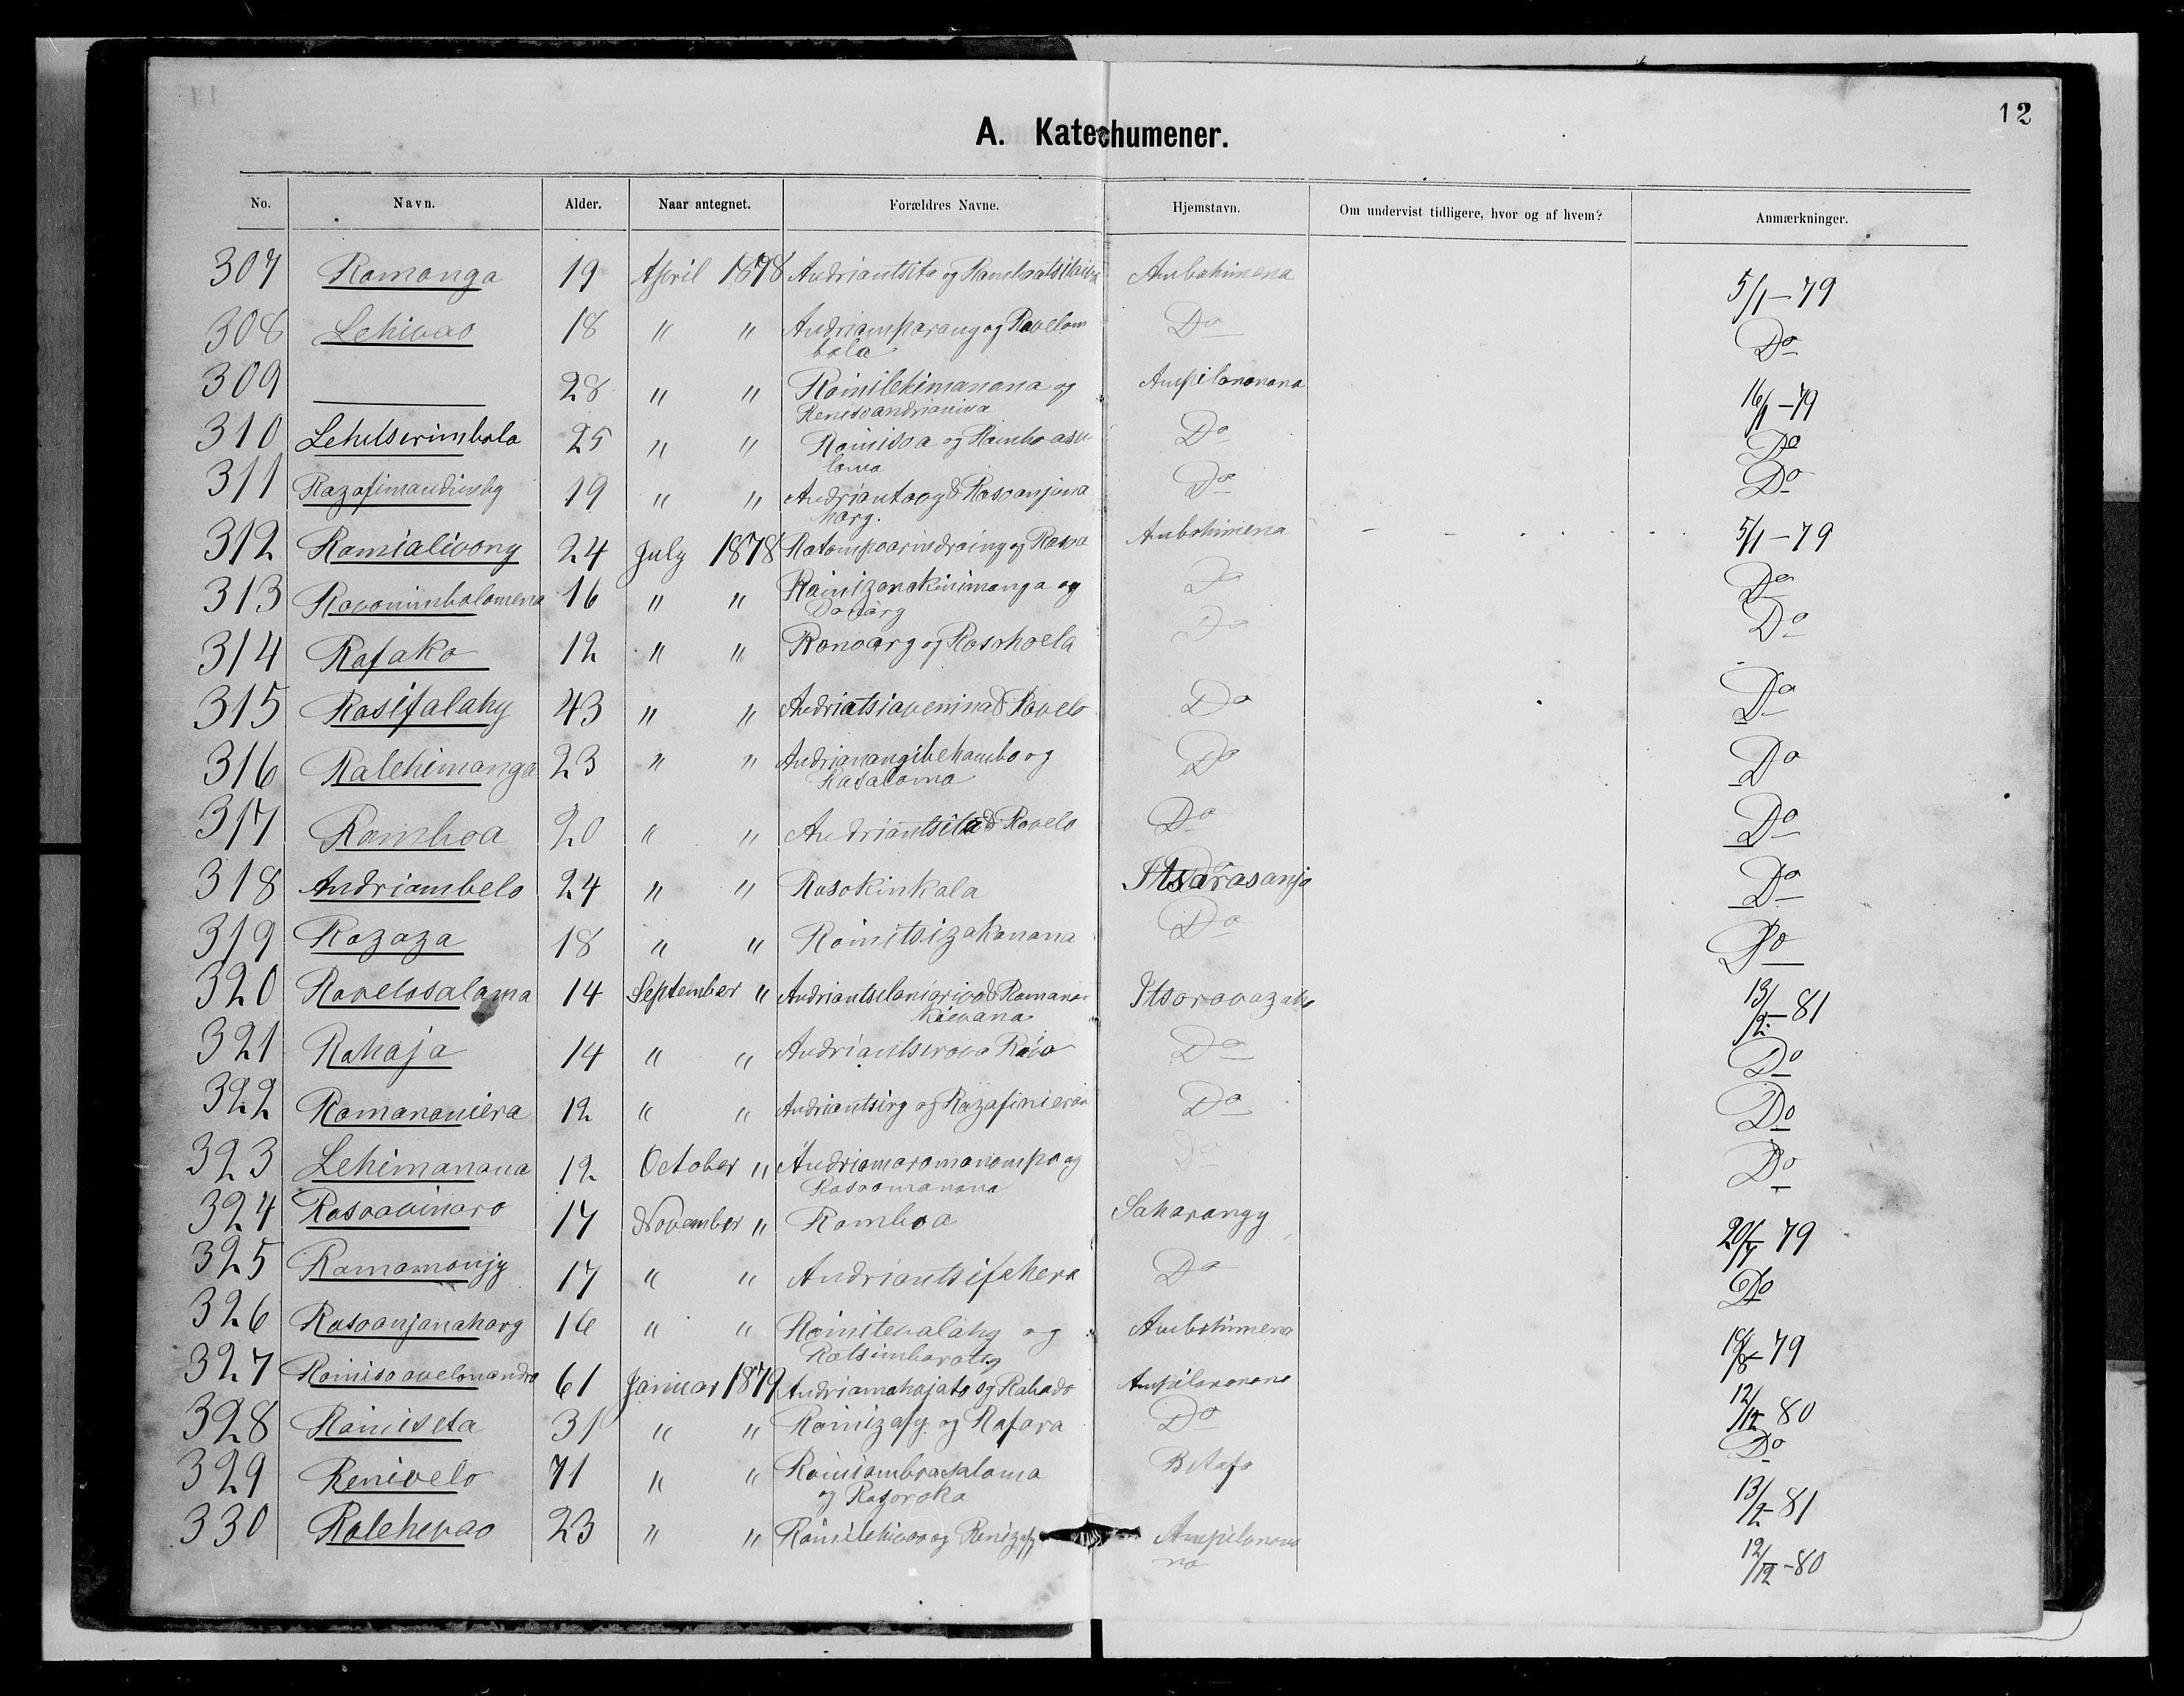 12
A. Katechumener.
No. Navn. Alder. Naar antegnet. Forældres Navne. Hjemstavn. Om undervist tidligere, hvor og af hvem? Anmærkninger.
307 Ramanga 19 April 1878 Andriantsita og Ambohimena 5/1-79
308 Lehivao 18 " " Andriamparany og Ravelom Do Do
bola
309 28 " " Rainilehimanana og Ampilanonana 16/1-79
Renisoandrianiva
310 Lehitsirimbola 25 " " Rainisoa og Ramboasa Do Do
lama
311 Razafimandimby 19 " " Andriantaog & Rasoanjana Do Do
hary.
312 Ramialivony 24 July 1878 Ratompoarindrainy og Rasoa Ambohimena 5/1-79
313 Ravonimbolamena 16 " " Rainizanakinimanga og Do Do
314 Rafako 12 " " Ranoary og Rasohoela Do Do
315 Rasifalahy 43 " " Andriatsiavenina & Ravelo Do Do
316 Ralehimanga 23 " " Andrianangibehambo og Do Do
Rasalama
317 Ramboa 20 " " Andriantsita & Ravelo Do Do
318 Andriambelo 24 " " Rasokinkala Itsarasanjo Do
319 Razaza 18 " " Rainitsizakanana Do Do
320 Ravelosalama 14 September " Andriantselaniarivo & Ramanan Itsaravazaha 13/2-81
kievana
321 Rahaja 14 " " Andriantserova Raivo Do Do
322 Ramananiera 12 " " Andriantsiry og Razafinieran Do Do
323 Lehimanana 12 October " Andriamaromanompo og Do Do
Rasoamanana
324 Rasoavinaro 17 November " Ramboa Saharangy 20/7-79
325 Ramamonjy 17 " " Andriantsifehera Do Do
326 Rasoanjanahary 16 " " Rainitevalahy og Ambohimena 18/8-79
Ratsimbaraty
327 Rainisoavelonandro 61 Januar 1879 Andriamahajato og Rabado Ampilanonana 12/12-80
328 Rainiseta 31 " " Rainizafy og Rafara Do Do
329 Renivelo 71 " " Rainiamboasalama Betafo 13/2-81
og Razoroka
330 Ralehevao 23 " " Rainilehivao og Renizafy Ampilanona 12/12-80
na